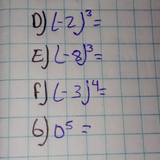 D) (-2)³=
E) (-8)³=
F) (-3)⁴=
G) 0⁵ =